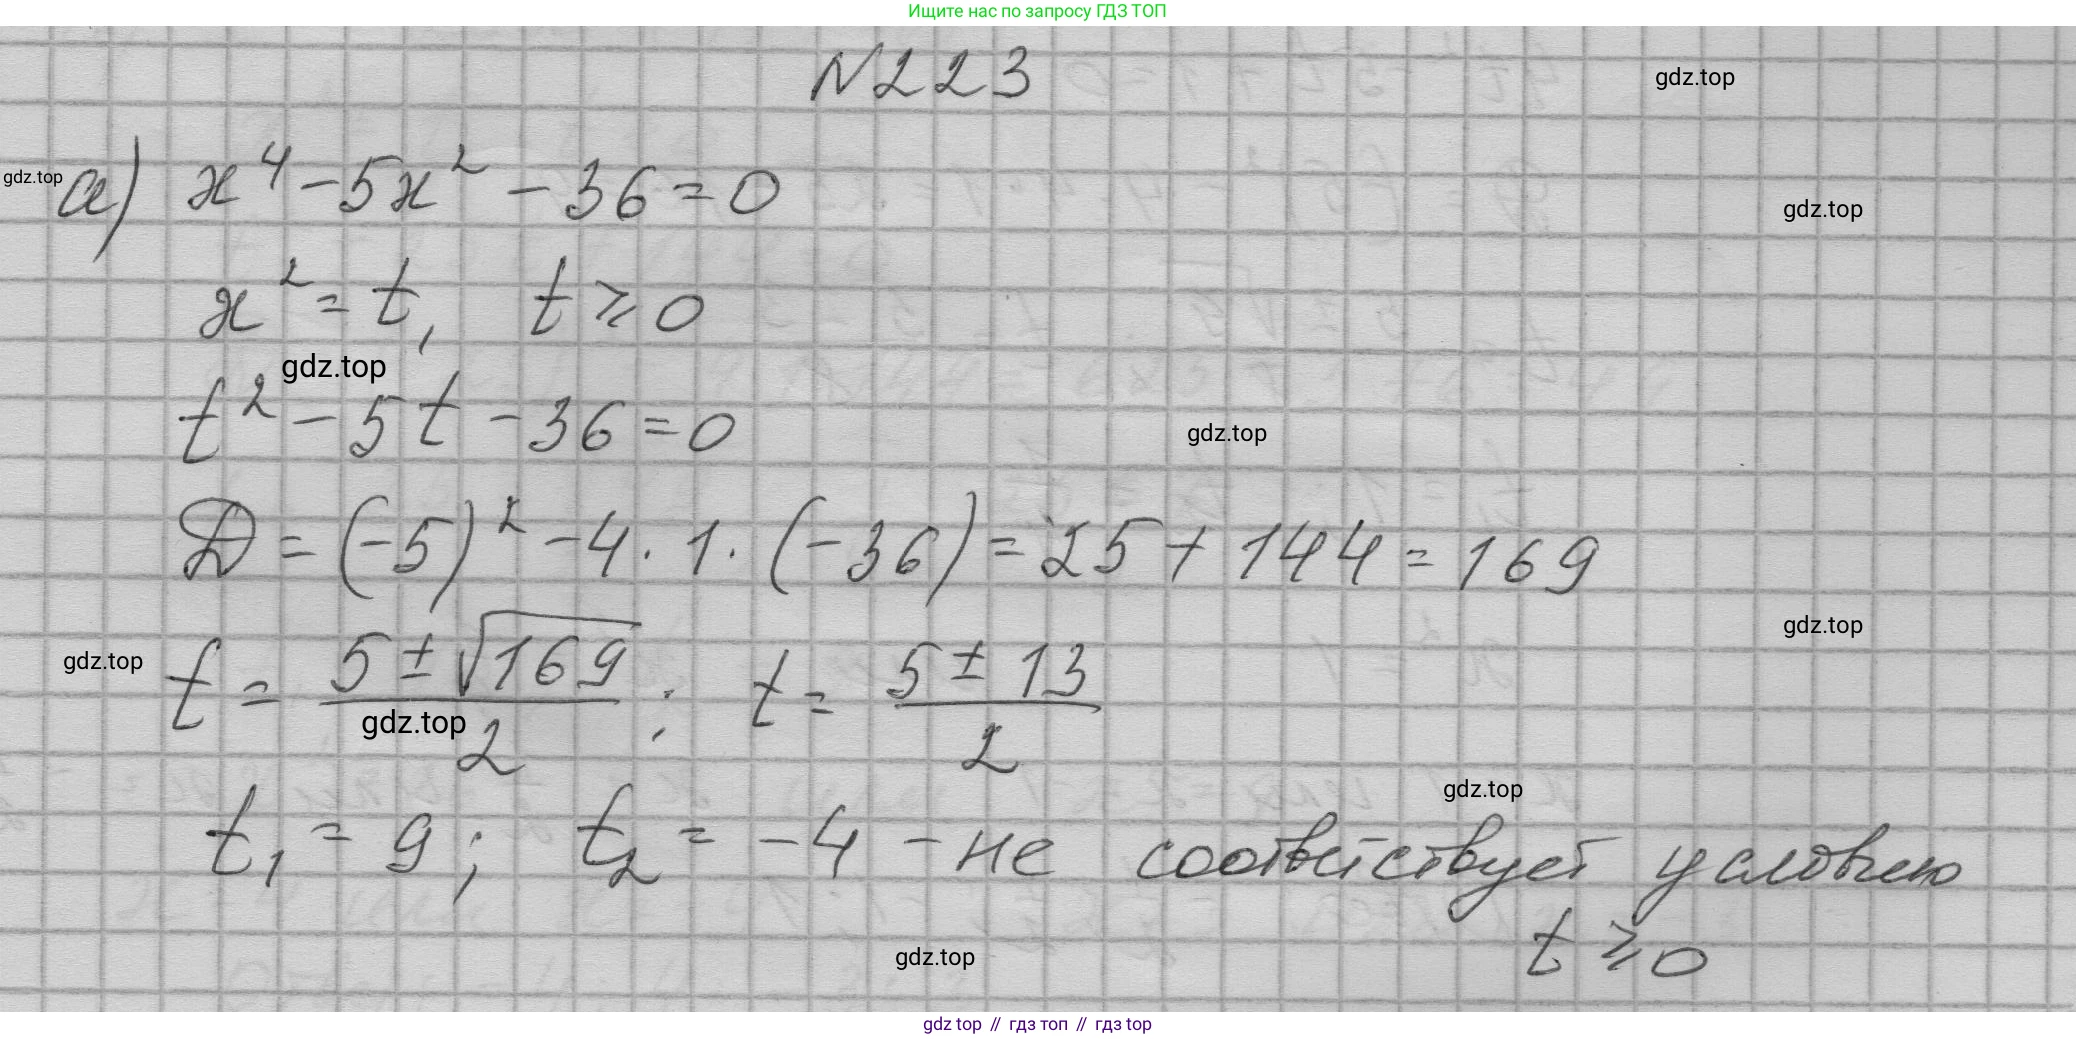 Ищите нас по запросу ГДЗ ТОП
N223
gdz.top
gdz.top а) x⁴ - 5x² - 36 = 0
gdz.top
x² = t, t ⩾ 0
gdz.top
t² - 5t - 36 = 0
gdz.top
D = (-5)² - 4 · 1 · (-36) = 25 + 144 = 169
gdz.top
gdz.top
t = (5 ± √169)/2 ; t = (5 ± 13)/2
gdz.top
gdz.top
t₁ = 9; t₂ = -4 - не соответствует условию
t ⩾ 0
gdz.top
gdz top // гдз топ // гдз top